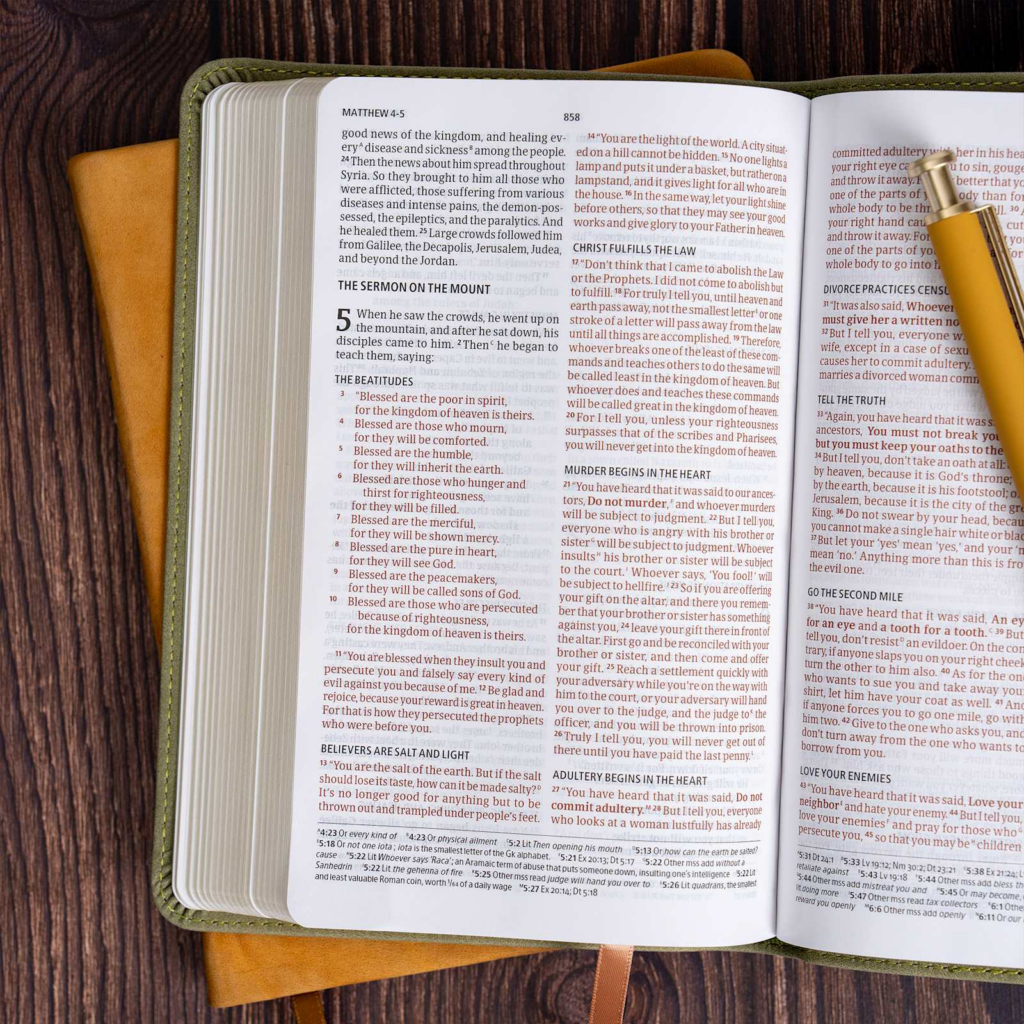 MATTHEW 4-5
858
good news of the kingdom, and healing ev-
ery^A disease and sickness^B among the people.
24 Then the news about him spread throughout
Syria. So they brought to him all those who
were afflicted, those suffering from various
diseases and intense pains, the demon-pos-
sessed, the epileptics, and the paralytics. And
he healed them. 25 Large crowds followed him
from Galilee, the Decapolis, Jerusalem, Judea,
and beyond the Jordan.
THE SERMON ON THE MOUNT
5 When he saw the crowds, he went up on
the mountain, and after he sat down, his
disciples came to him. 2 Then^C he began to
teach them, saying:
THE BEATITUDES
3 "Blessed are the poor in spirit,
for the kingdom of heaven is theirs.
4 Blessed are those who mourn,
for they will be comforted.
5 Blessed are the humble,
for they will inherit the earth.
6 Blessed are those who hunger and
thirst for righteousness,
for they will be filled.
7 Blessed are the merciful,
for they will be shown mercy.
8 Blessed are the pure in heart,
for they will see God.
9 Blessed are the peacemakers,
for they will be called sons of God.
10 Blessed are those who are persecuted
because of righteousness,
for the kingdom of heaven is theirs.
11 "You are blessed when they insult you and
persecute you and falsely say every kind of
evil against you because of me. 12 Be glad and
rejoice, because your reward is great in heaven.
For that is how they persecuted the prophets
who were before you.
BELIEVERS ARE SALT AND LIGHT
13 "You are the salt of the earth. But if the salt
should lose its taste, how can it be made salty?^D
It's no longer good for anything but to be
thrown out and trampled under people's feet.
14 "You are the light of the world. A city situat-
ed on a hill cannot be hidden. 15 No one lights a
lamp and puts it under a basket, but rather on a
lampstand, and it gives light for all who are in
the house. 16 In the same way, let your light shine
before others, so that they may see your good
works and give glory to your Father in heaven.
CHRIST FULFILLS THE LAW
17 "Don't think that I came to abolish the Law
or the Prophets. I did not come to abolish but
to fulfill. 18 For truly I tell you, until heaven and
earth pass away, not the smallest letter^E or one
stroke of a letter will pass away from the law
until all things are accomplished. 19 Therefore,
whoever breaks one of the least of these com-
mands and teaches others to do the same will
be called least in the kingdom of heaven. But
whoever does and teaches these commands
will be called great in the kingdom of heaven.
20 For I tell you, unless your righteousness
surpasses that of the scribes and Pharisees,
you will never get into the kingdom of heaven.
MURDER BEGINS IN THE HEART
21 "You have heard that it was said to our ances-
tors, Do not murder,^F and whoever murders
will be subject to judgment. 22 But I tell you,
everyone who is angry with his brother or
sister^G will be subject to judgment. Whoever
insults^H his brother or sister will be subject
to the court.^I Whoever says, 'You fool!' will
be subject to hellfire.^J 23 So if you are offering
your gift on the altar, and there you remem-
ber that your brother or sister has something
against you, 24 leave your gift there in front of
the altar. First go and be reconciled with your
brother or sister, and then come and offer
your gift. 25 Reach a settlement quickly with
your adversary while you're on the way with
him to the court, or your adversary will hand
you over to the judge, and the judge to^K the
officer, and you will be thrown into prison.
26 Truly I tell you, you will never get out of
there until you have paid the last penny.^L
ADULTERY BEGINS IN THE HEART
27 "You have heard that it was said, Do not
commit adultery.^M 28 But I tell you, everyone
who looks at a woman lustfully has already
^A4:23 Or every kind of ^B4:23 Or physical ailment ^C5:2 Lit Then opening his mouth ^D5:13 Or how can the earth be salted?
^E5:18 Or not one iota; iota is the smallest letter of the Gk alphabet. ^F5:21 Ex 20:13; Dt 5:17 ^G5:22 Other mss add without a
cause ^H5:22 Lit Whoever says 'Raca'; an Aramaic term of abuse that puts someone down, insulting one's intelligence ^I5:22 Lit
Sanhedrin ^J5:22 Lit the gehenna of fire ^K5:25 Other mss read judge will hand you over to ^L5:26 Lit quadrans, the smallest
and least valuable Roman coin, worth 1/64 of a daily wage ^M5:27 Ex 20:14; Dt 5:18
committed adultery with her in his hea
your right eye ca you to sin, gouge
and throw it away. better that yo
one of the parts of ody than for
whole body to be thr ll. 30
your right hand cau cut
and throw it away. For
one of the parts of yo
whole body to go into h
DIVORCE PRACTICES CENSU
31 "It was also said, Whoever
must give her a written no
32 But I tell you, everyone w
wife, except in a case of sexu
causes her to commit adultery.
marries a divorced woman comm
TELL THE TRUTH
33 "Again, you have heard that it was s
ancestors, You must not break you
but you must keep your oaths to the
34 But I tell you, don't take an oath at all:
by heaven, because it is God's throne;
by the earth, because it is his footstool; o
Jerusalem, because it is the city of the gre
King. 36 Do not swear by your head, becau
you cannot make a single hair white or blac
37 But let your 'yes' mean 'yes,' and your 'n
mean 'no.' Anything more than this is fro
the evil one.
GO THE SECOND MILE
38 "You have heard that it was said, An ey
for an eye and a tooth for a tooth.^C 39 But
tell you, don't resist^D an evildoer. On the con
trary, if anyone slaps you on your right cheek
turn the other to him also. 40 As for the one
who wants to sue you and take away your
shirt, let him have your coat as well. 41 And
if anyone forces you to go one mile, go with
him two. 42 Give to the one who asks you, and
don't turn away from the one who wants to
borrow from you.
LOVE YOUR ENEMIES
43 "You have heard that it was said, Love your
neighbor^E and hate your enemy. 44 But I tell you,
love your enemies^F and pray for those who^G
persecute you, 45 so that you may be^H children
5:31 Dt 24:1 5:33 Lv 19:12; Nm 30:2; Dt 23:21 5:38 Ex 21:24; L
retaliate against 5:43 Lv 19:18 5:44 Other mss add bless th
5:44 Other mss add mistreat you and 5:45 Or may become,
it doing more 5:47 Other mss read tax collectors 6:1 Othe
reward you openly 6:6 Other mss add openly 6:11 Or our